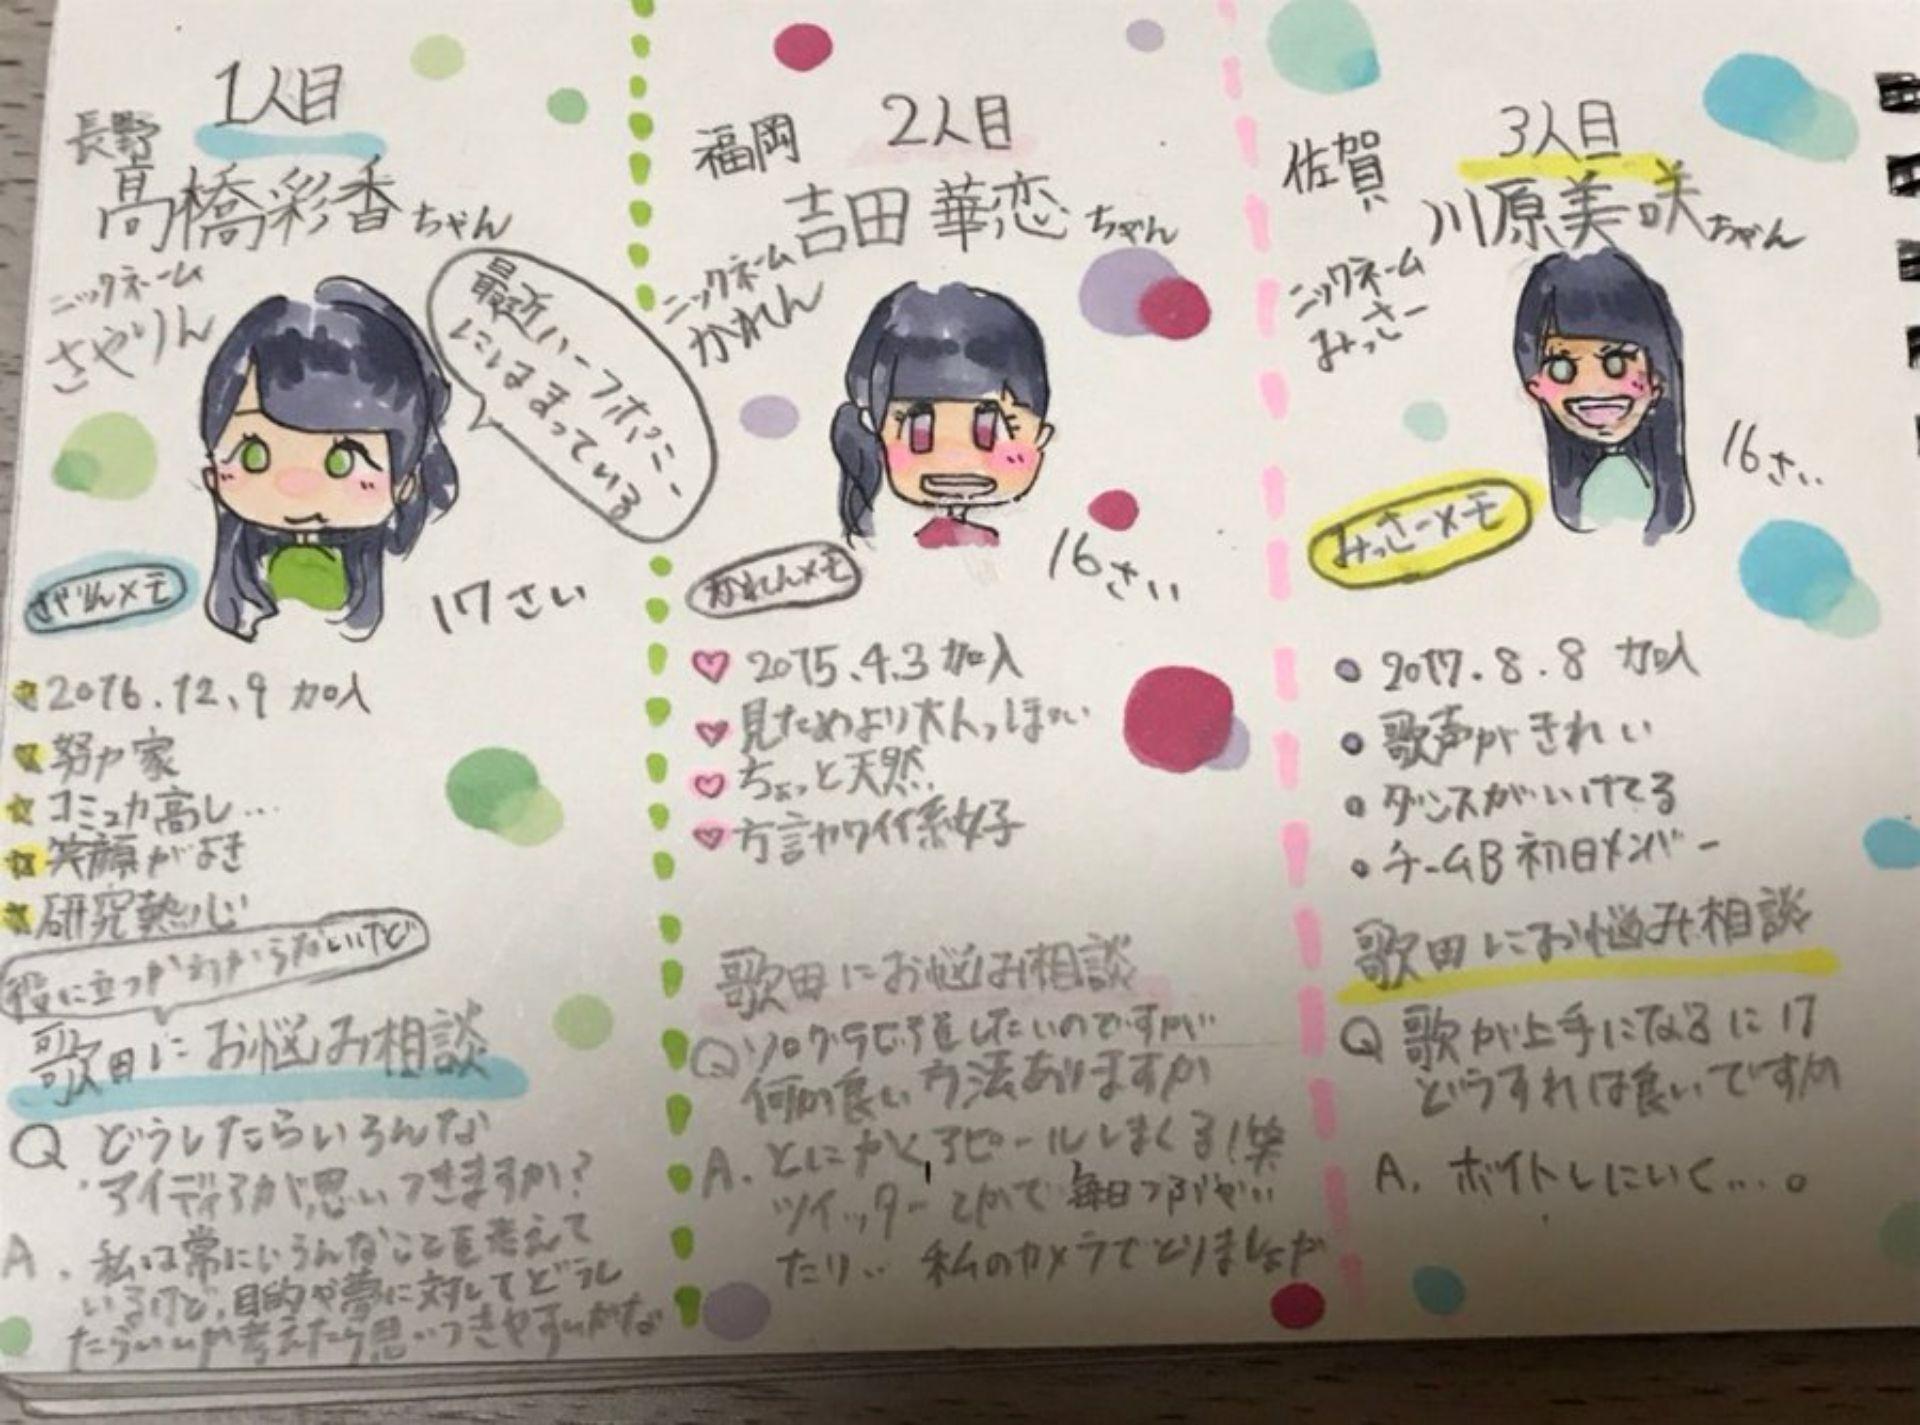 1人目
長野
高橋彩香ちゃん
ニックネーム
さやりん
最近ハーフポニー
にはまっている
さやりんメモ
17さい
2016.12.9 加入
努力家
コミュ力高し…
笑顔がよき
研究熱心
役に立つかわからないけど
歌田にお悩み相談
Q どうしたらいろんな
アイディアが思いつきますか?
A. 私は常にいろんなことを考えて
いるけど、目的や夢に対してどうし
たらいいか考えたら思いつきやすいかな
2人目
福岡
吉田華恋ちゃん
ニックネーム
かれん
かれんメモ
16さい
♡ 2015.4.3 加入
♡ 見ためより大人っぽい
♡ ちょっと天然
♡ 方言カワイイ系女子
歌田にお悩み相談
Q ソログラビアをしたいのですが
何か良い方法ありますか
A. とにかくアピールしまくる!笑
ツイッターとかで毎日つぶやい
たり.. 私のカメラでとりましょか
3人目
佐賀
川原美咲ちゃん
ニックネーム
みっさー
16さい
みっさーメモ
2017.8.8 加入
歌声がきれい
ダンスがいけてる
チームB 初日メンバー
歌田にお悩み相談
Q 歌が上手になるには
どうすれば良いですか
A. ボイトレにいく...。